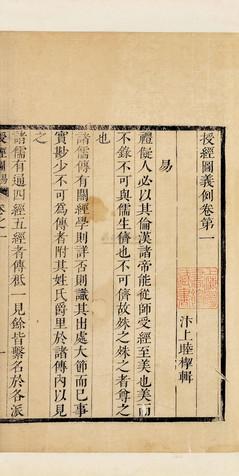 授經圖義例卷第一
汴上睦㮮輯
易
禮儗人必以其倫漢諸帝能從師受經至美也美而
不錄不可與儒生儕也不可儕故殊之殊之者尊之
也
諸儒傳有關經學則詳否則識其出處大節而已事
實尠少不可為傳者附其姓氏爵里於諸傳內以見
之
諸儒有通四經五經者傳祗一見餘皆繫名於各派
授經圖易 卷之一